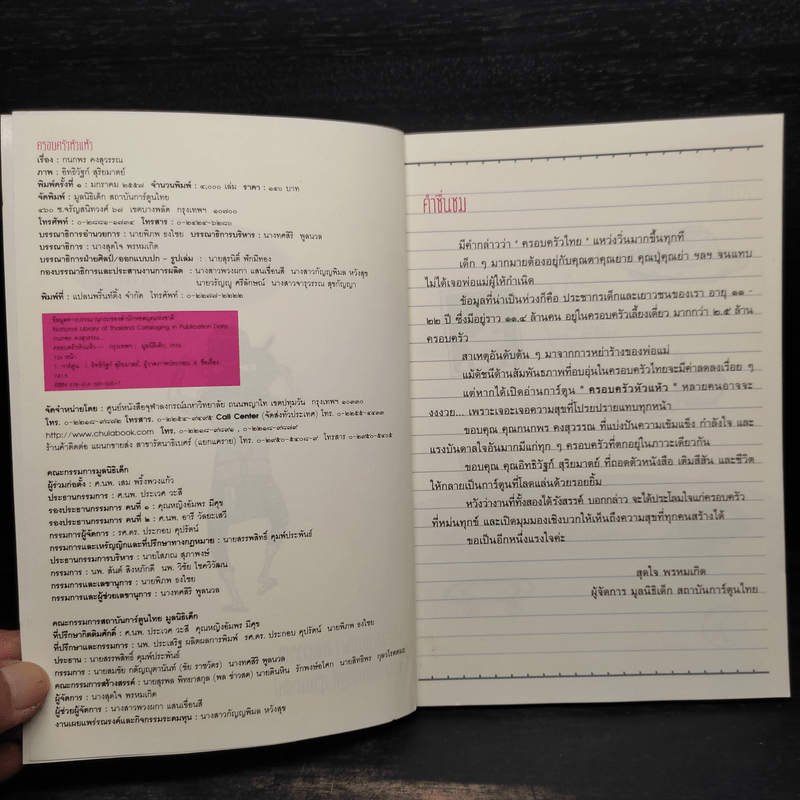 ครอบครัวหัวแห้ว
เรื่อง : กนกพร คงสุวรรณ
ภาพ : อิทธิวัฐก์ สุริยมาตย์
พิมพ์ครั้งที่ ๑ : มกราคม ๒๕๕๗ จำนวนพิมพ์ : ๔,๐๐๐ เล่ม ราคา : ๑๔๐ บาท
จัดพิมพ์ : มูลนิธิเด็ก สถาบันการ์ตูนไทย
๔๖๐ ซ.จรัญสนิทวงศ์ ๖๗ เขตบางพลัด กรุงเทพฯ ๑๐๗๐๐
โทรศัพท์ : ๐-๒๘๘๑-๑๗๓๔ โทรสาร : ๐-๒๔๒๔-๖๒๘๐
บรรณาธิการอำนวยการ : นายพิภพ ธงไชย บรรณาธิการบริหาร : นางทศสิริ พูลนวล
บรรณาธิการ : นางสุดใจ พรหมเกิด
บรรณาธิการฝ่ายศิลป์/ออกแบบปก - รูปเล่ม : นายสุรนิติ์ พักมีทอง
กองบรรณาธิการและประสานงานการผลิต : นางสาวพวงผกา แสนเขื่อนสี นางสาวกัญญพิมล หวังสุข
นายวรัญญู ศรีลักษณ์ นางสาวจารุวรรณ สุขกัญญา
พิมพ์ที่ : แปลนพริ้นท์ติ้ง จำกัด โทรศัพท์ : ๐-๒๒๗๗-๒๒๒๒
ข้อมูลทางบรรณานุกรมของสำนักหอสมุดแห่งชาติ
National Library of Thailand Cataloging in Publication Data
กนกพร คงสุวรรณ
ครอบครัวหัวแห้ว.-- กรุงเทพฯ : มูลนิธิเด็ก, 2556
134 หน้า
1. การ์ตูน. I. อิทธิวัฐก์ สุริยมาตย์, ผู้วาดภาพประกอบ. II. ชื่อเรื่อง.
741.5
จัดจำหน่ายโดย : ศูนย์หนังสือจุฬาลงกรณ์มหาวิทยาลัย ถนนพญาไท เขตปทุมวัน กรุงเทพฯ ๑๐๓๓๐
โทร. ๐-๒๒๑๘-๙๘๗๒ โทรสาร. ๐-๒๒๕๔-๙๔๙๕ Call Center (จัดส่งทั่วประเทศ) โทร. ๐-๒๒๕๕-๔๔๓๓
http://www.chulabook.com โทร. ๐-๒๒๑๘-๙๘๘๑ , ๐-๒๒๑๘-๙๘๗๙
ร้านค้าติดต่อ แผนกขายส่ง สาขารัตนาธิเบศร์ (แยกแคราย) โทร. ๐-๒๙๕๐-๕๔๐๘-๙ โทรสาร ๐-๒๙๕๐-๕๔๐๕
คณะกรรมการมูลนิธิเด็ก
ผู้ร่วมก่อตั้ง : ศ.นพ. เสม พริ้งพวงแก้ว
ประธานกรรมการ : ศ.นพ. ประเวศ วะสี
รองประธานกรรมการ คนที่ ๑ : คุณหญิงอัมพร มีศุข
รองประธานกรรมการ คนที่ ๒ : ศ.นพ. อารี วัลยะเสวี
กรรมการผู้จัดการ : รศ.ดร. ประกอบ คุปรัตน์
กรรมการและเหรัญญิกและที่ปรึกษาทางกฎหมาย : นายสรรพสิทธิ์ คุมพ์ประพันธ์
ประธานกรรมการบริหาร : นายโสภณ สุภาพงษ์
กรรมการ : นพ. สันต์ สิงหภักดี นพ. วิชัย โชควิวัฒน
กรรมการและเลขานุการ : นายพิภพ ธงไชย
กรรมการและผู้ช่วยเลขานุการ : นางทศสิริ พูลนวล
คณะกรรมการสถาบันการ์ตูนไทย มูลนิธิเด็ก
ที่ปรึกษากิตติมศักดิ์ : ศ.นพ. ประเวศ วะสี คุณหญิงอัมพร มีศุข
ที่ปรึกษาและกรรมการ : นพ. ประเสริฐ ผลิตผลการพิมพ์ รศ.ดร. ประกอบ คุปรัตน์ นายพิภพ ธงไชย
ประธาน : นายสรรพสิทธิ์ คุมพ์ประพันธ์
กรรมการ : นายสมชัย กตัญญุตานันท์ (ชัย ราชวัตร) นางทศสิริ พูลนวล
คณะกรรมการสร้างสรรค์ : นายสุรพล พิทยาสกุล (พล ข่าวสด) นายดินหิน รักพงษ์อโศก นายสิทธิพร กุลวโรตตมะ
ผู้จัดการ : นางสุดใจ พรหมเกิด
ผู้ช่วยผู้จัดการ : นางสาวพวงผกา แสนเขื่อนสี
งานเผยแพร่รณรงค์และกิจกรรมระดมทุน : นางสาวกัญญพิมล หวังสุข
คำชื่นชม
มีคำกล่าวว่า " ครอบครัวไทย " แหว่งวิ่นมากขึ้นทุกที
เด็ก ๆ มากมายต้องอยู่กับคุณตาคุณยาย คุณปู่คุณย่า ฯลฯ จนแทบ
ไม่ได้เจอพ่อแม่ผู้ให้กำเนิด
ข้อมูลที่น่าเป็นห่วงก็คือ ประชากรเด็กและเยาวชนของเรา อายุ ๑๑ -
๒๒ ปี ซึ่งมีอยู่ราว ๑๑.๔ ล้านคน อยู่ในครอบครัวเลี้ยงเดี่ยว มากกว่า ๒.๕ ล้าน
ครอบครัว
สาเหตุอันดับต้น ๆ มาจากการหย่าร้างของพ่อแม่
แม้ดัชนีด้านสัมพันธภาพที่อบอุ่นในครอบครัวไทยจะมีค่าลดลงเรื่อย ๆ
แต่หากได้เปิดอ่านการ์ตูน " ครอบครัวหัวแห้ว " หลายคนอาจจะ
งงงวย... เพราะเจอะเจอความสุขที่โปรยปรายแทบทุกหน้า
ขอบคุณ คุณกนกพร คงสุวรรณ ที่แบ่งปันความเข้มแข็ง กำลังใจ และ
แรงบันดาลใจอันมากมีแก่ทุก ๆ ครอบครัวที่ตกอยู่ในภาวะเดียวกัน
ขอบคุณ คุณอิทธิวัฐก์ สุริยมาตย์ ที่ถอดตัวหนังสือ เติมสีสัน และชีวิต
ให้กลายเป็นการ์ตูนที่โลดแล่นด้วยรอยยิ้ม
หวังว่างานที่ทั้งสองได้รังสรรค์ บอกกล่าว จะได้ประโลมใจแก่ครอบครัว
ที่หม่นทุกข์ และเปิดมุมมองเชิงบวกให้เห็นถึงความสุขที่ทุกคนสร้างได้
ขอเป็นอีกหนึ่งแรงใจค่ะ
สุดใจ พรหมเกิด
ผู้จัดการ มูลนิธิเด็ก สถาบันการ์ตูนไทย